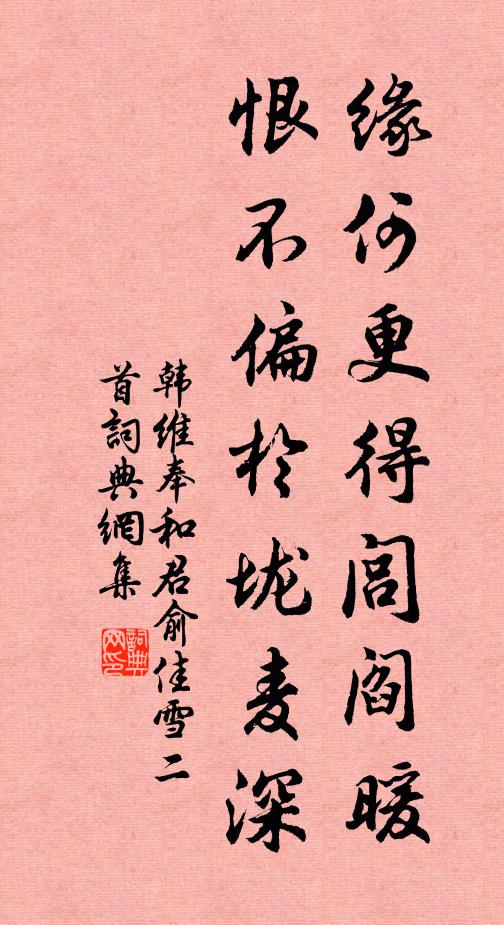 缘何更得闾阎暖
恨不偏於垅麦深
韩维奉和君俞佳雪二
首詞典網集
詞典網印